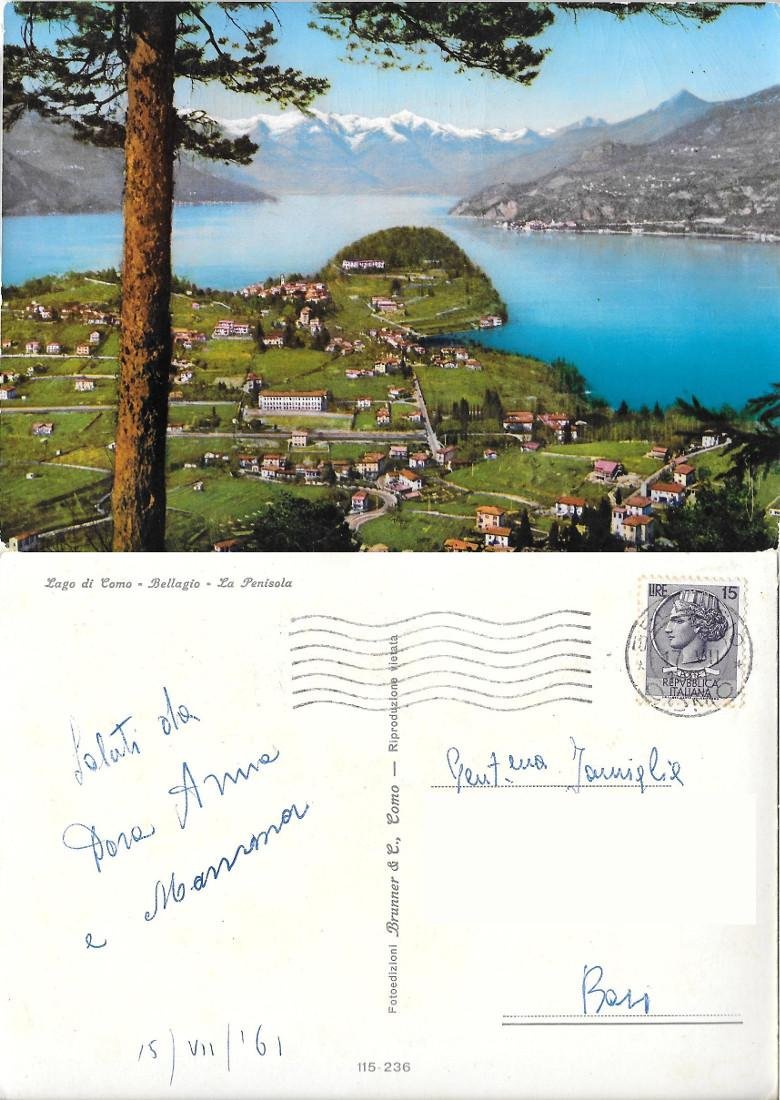 Lago di Como - Bellagio - La Penisola
LIRE 15
REPVBBLICA
ITALIANA
Saluti da
Dora Anna
e
15/VII/'61
Fotoedizioni Brunner & C., Como — Riproduzione vietata
Gent.ma Famiglia
Bari
115-236